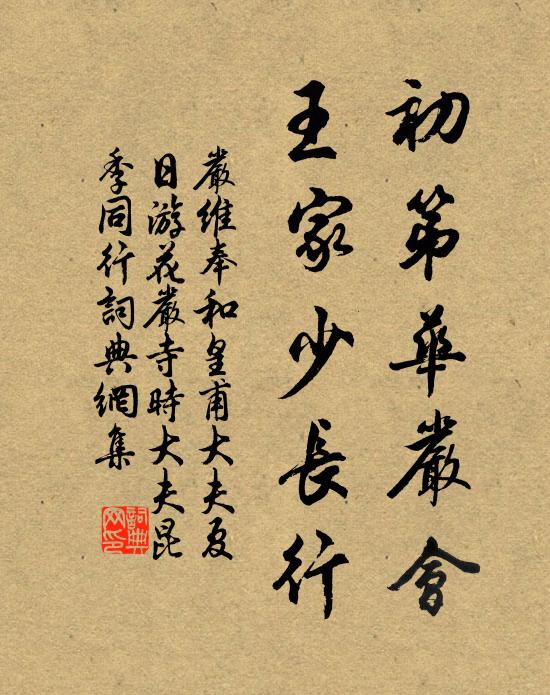 初第華嚴會
王家少長行
嚴維奉和皇甫大夫夏
日游花嚴寺時大夫昆
季同行詞典網集
詞典網印